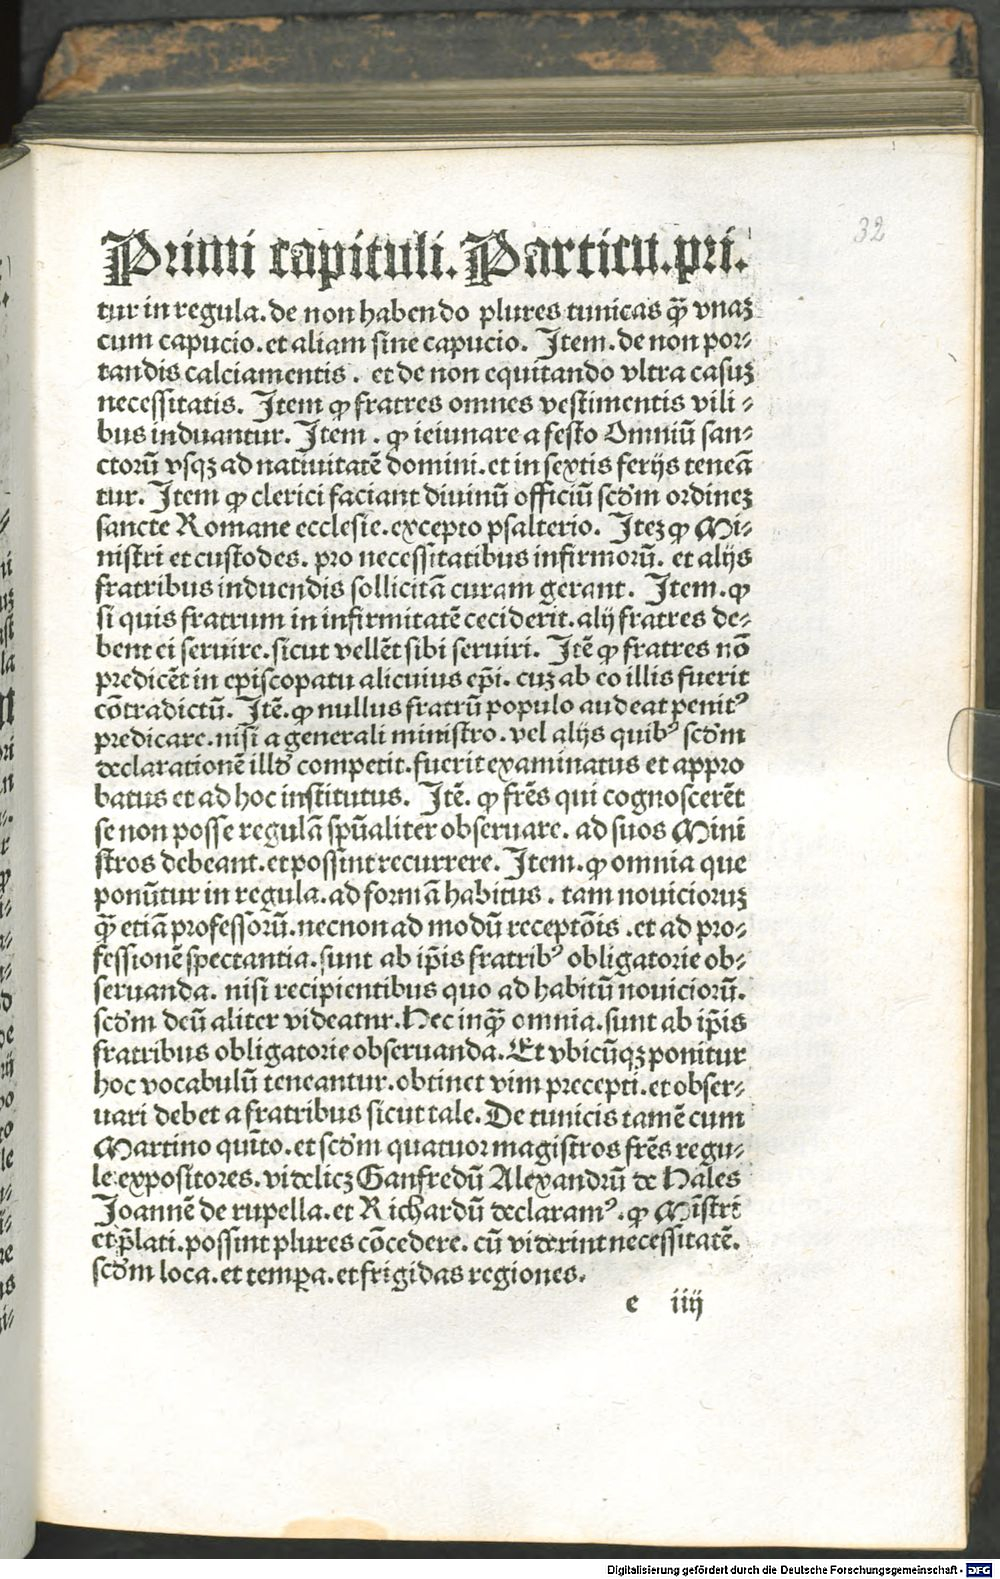 32
Primi capituli. Particu. pri.
tur in regula. de non habendo plures tunicas q̄ꝫ vnaꝫ
cum capucio. et aliam sine capucio. Item. de non por⸗
tandis calciamentis. et de non equitando vltra casuꝫ
necessitatis. Item ꝙ fratres omnes vestimentis vili⸗
bus induantur. Item. ꝙ ieiunare a festo Omniū san⸗
ctorū vsqꝫ ad natiuitatē domini. et in sextis ferijs teneā
tur. Item ꝙ clerici faciant diuinū officiū scḋm ordineꝫ
sancte Romane ecclesie. excepto psalterio. Iteꝫ ꝙ Mi⸗
nistri et custodes. pro necessitatibus infirmorū. et alijs
fratribus induendis sollicitā curam gerant. Item. ꝙ
si quis fratrum in infirmitatē ceciderit. alij fratres de⸗
bent ei seruire. sicut vellēt sibi seruiri. Itē ꝙ fratres nō
predicēt in episcopatu alicuius ep̄i. cuꝫ ab eo illis fuerit
cōtradictū. Itē. ꝙ nullus fratrū populo audeat penitꝰ
predicare. nisi a generali ministro. vel alijs quibꝰ scḋm
declarationē illḋ competit. fuerit examinatus et appro
batus et ad hoc institutus. Itē. ꝙ frēs qui cognoscerēt
se non posse regulā spūaliter obseruare. ad suos Mini
stros debeant. et possint recurrere. Item. ꝙ omnia que
ponūtur in regula. ad formā habitus. tam nouicioruꝫ
q̄ꝫ etiā professorū. necnon ad modū receptōis. et ad pro⸗
fessionē spectantia. sunt ab ip̄is fratribꝰ obligatorie ob⸗
seruanda. nisi recipientibus quo ad habitū nouiciorū.
scḋm deū aliter videatur. Hec inq̄ꝫ omnia. sunt ab ip̄is
fratribus obligatorie obseruanda. Et vbicūqꝫ ponitur
hoc vocabulū teneantur. obtinet vim precepti. et obser⸗
uari debet a fratribus sicut tale. De tunicis tamē cum
Martino quīto. et scḋm quatuor magistros frēs regu⸗
le expositores. videlicꝫ Ganfredū Alexandrū de Hales
Joannē de rupella. et Richardū declaramꝰ. ꝙ Mīstri
et p̄lati. possint plures cōcedere. cū viderint necessitatē.
scḋm loca. et tempa. et frigidas regiones.
e iiij
Digitalisierung gefördert durch die Deutsche Forschungsgemeinschaft - DFG